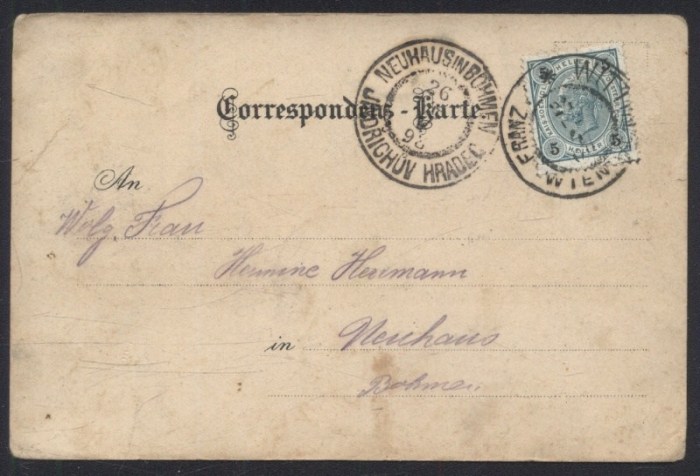 Correspondenz-Karte
NEUHAUS IN BÖHMEN
JINDŘICHŮV HRADEC
26
98
FRANZ
WIEN
5 5
An
Wolg. Frau
Hermine Herrmann
in Neuhaus
Böhmen